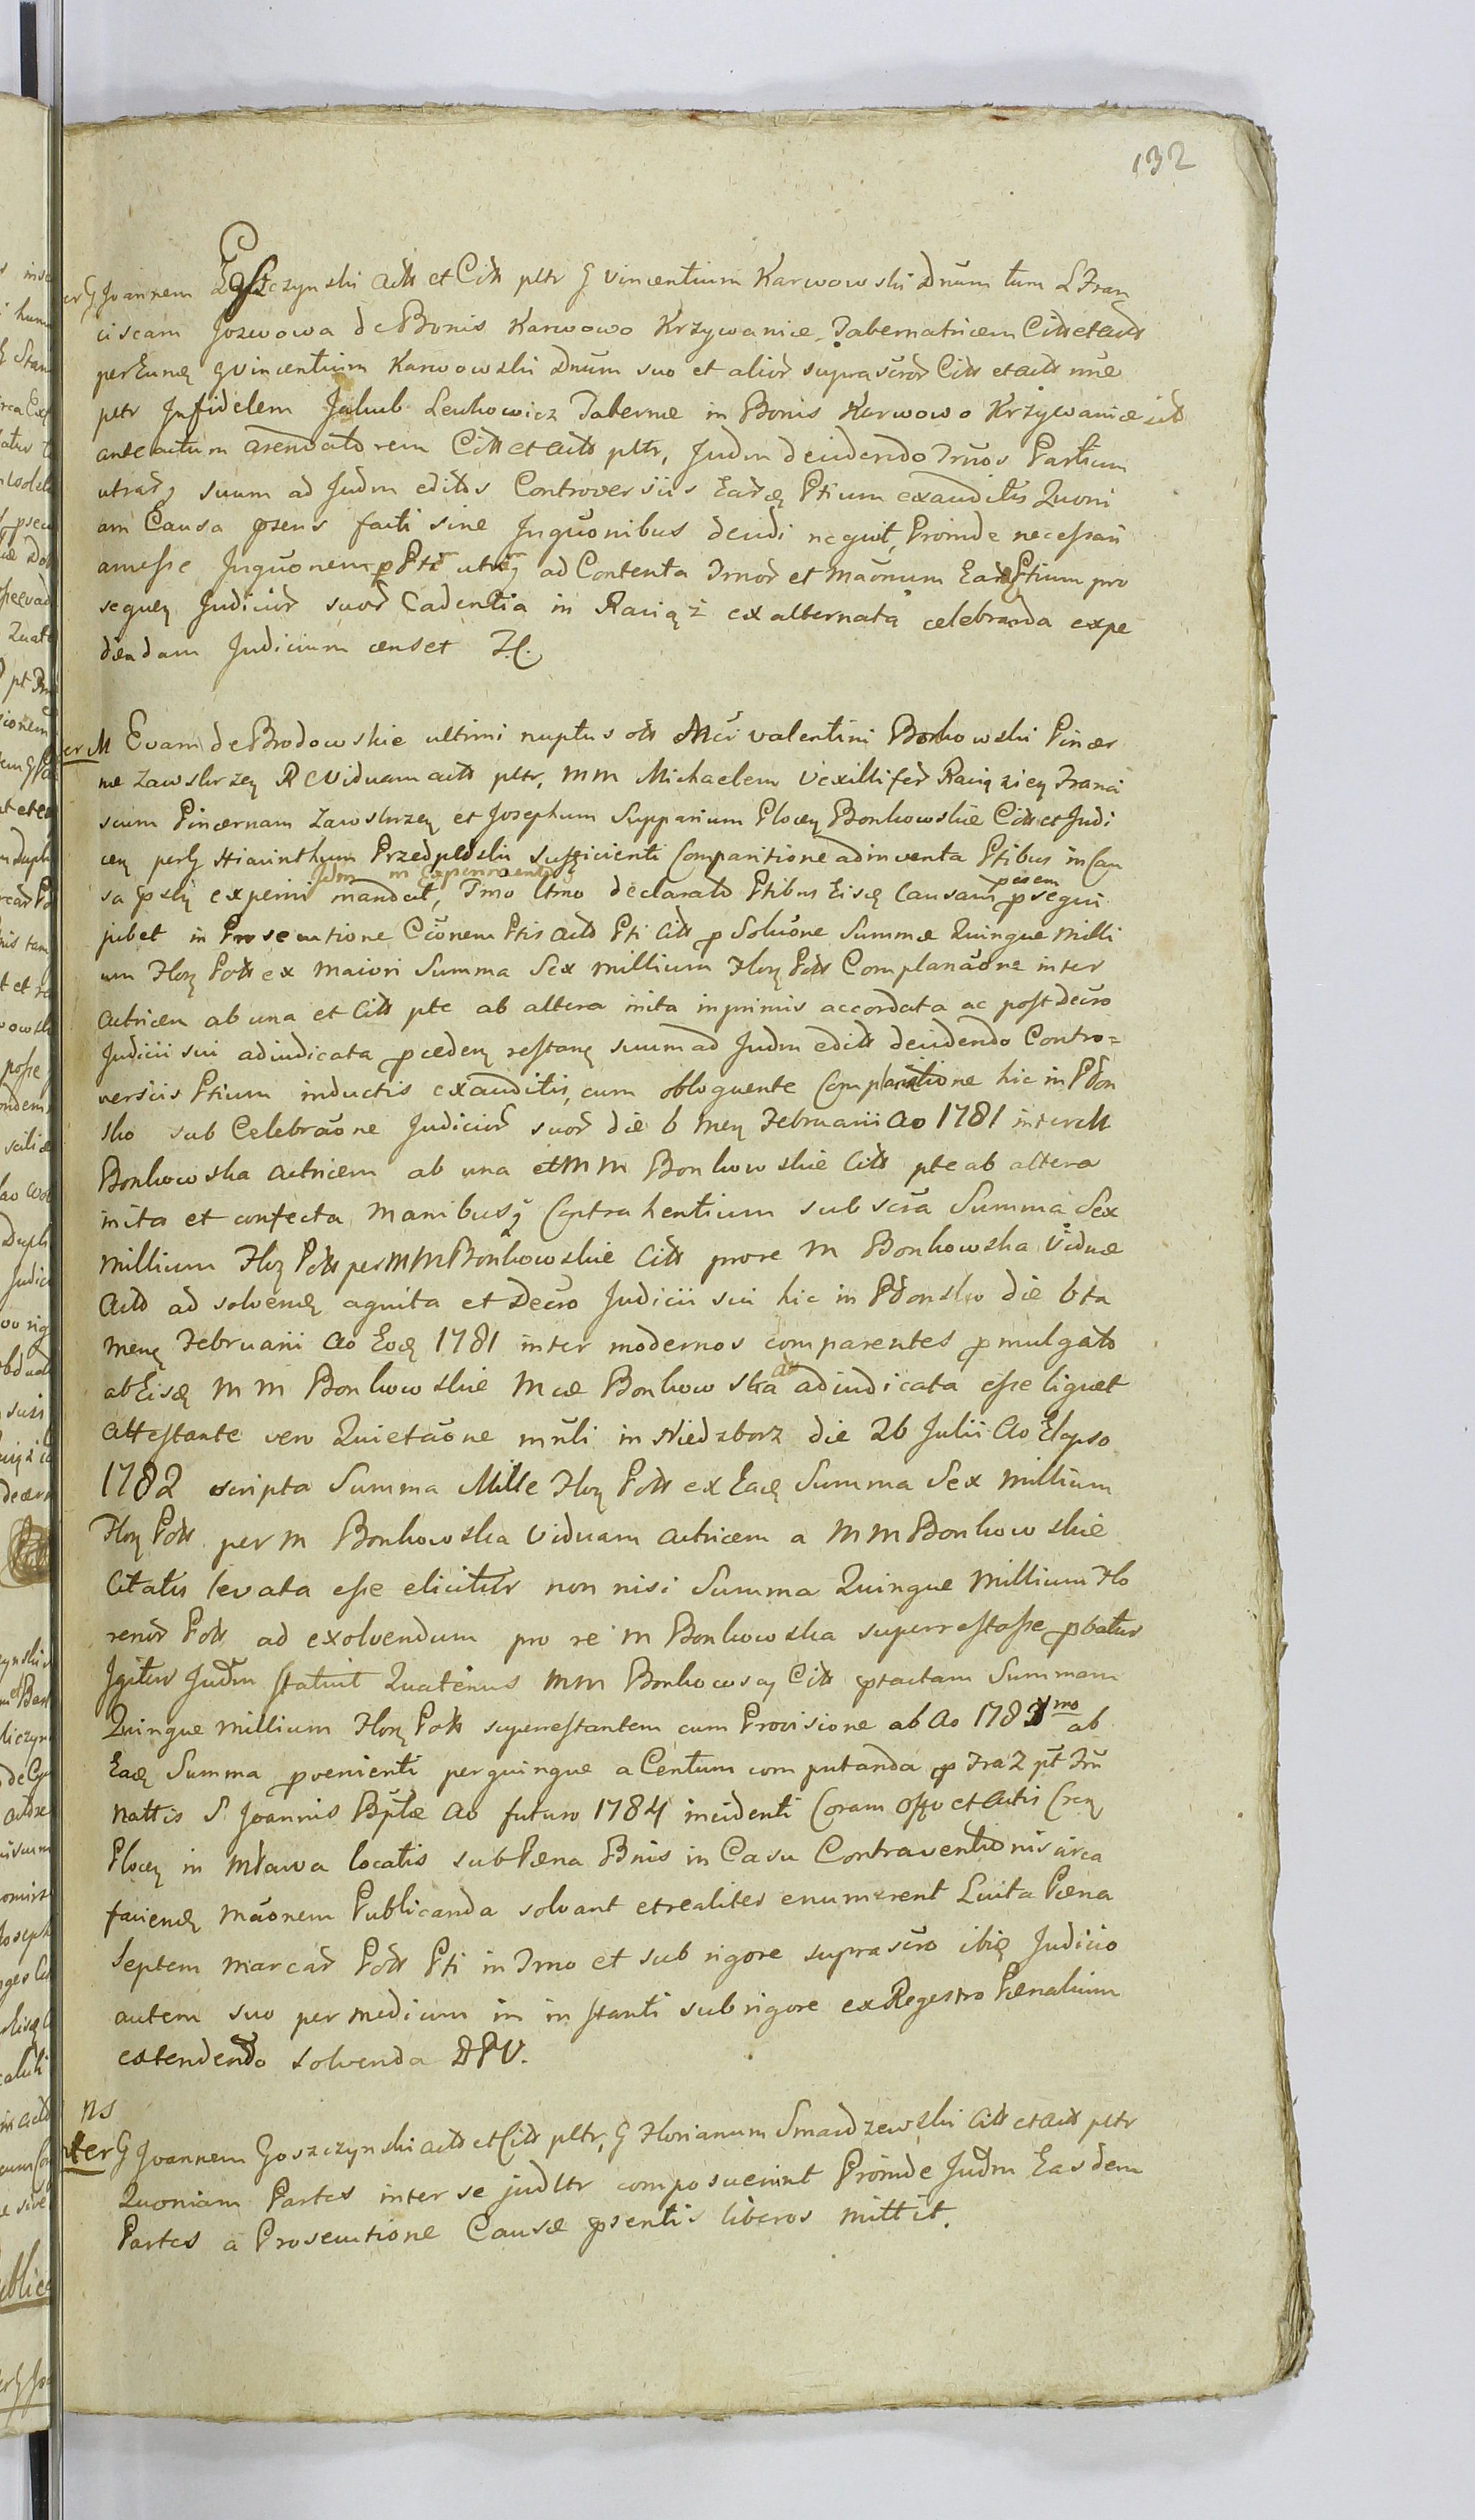 132
G Joannem Goszczynski actt et Citt pltr G Vincentium Karwowski Dnum tum L Fran
ciscam Jozwowa de Bonis Karwowo Krzywanice Tabernatricem Citt et actt
per Eunq G Vincentium Karwowski Dnum suo et alior suprascror Citt et actt nne
pltr Infidelem Jakub Lewkowicz Tabernæ in Bonis Karwowo Krzywanice sit
anteactum arendatorem Citt et actt pltr, Judm decidendo Trnos Partium
utrarq suum ad Judm editos Controversiis Earq Ptium exauditis Quoni
am Causa psens facti sine Inquonibus decidi nequit, Proinde necessari
am esse Inquonem p Pte utrq ad Contenta Trnor et maonum Earq Ptium pro
sequen Judicior suor Cadentia in Raciąż ex alternata celebranda expe
diendam Judicium censet H.
er M Evam de Brodowskie ultimi nuptus ott Mci Valentini Bonkowski Pincer
næ Zawskrzen R Viduam actt pltr, MM Michaelem Vexillifer Raciązien Franci
scum Pincernam Zawskrzen et Josephum Supparium Plocen Bonkowskie Citt et Judi
cen per G Hiacinthum Przedpełski sufficienti Comparitione adinventa Ptibus in Cau
Jdm in Experimentis
sa pstq experiri mandat, Tmo ltmo declarato Ptibus Eisq Causam psegui
psem
jubet in Prosecutione Cionem Ptis actt Pti Citt p Soluone Summæ Quinque Milli
um Flor Pott ex maiori Summa Sex millium Flor Pott Complanaone inter
actricem ab una et Citt pte ab altera inita inprimis accordata ac post decro
Judicii sui adiudicata pceden restanq suum ad Judm edito decidendo Contro=
versiis Ptium inductis exauditis, cum obloquente Complanatione hic in Płon
sko sub Celebraone Judicior suor die 6 men Februarii ao 1781 inter M
Bonkowska actricem ab una et MM Bonkowskie Citt pte ab altera
inita et confecta manibusq Contrahentium subscra Summa Sex
millium Flor Pott per MM Bonkowskie Citt pro re M Bonkowska Viduæ
actt ad solvenq agnita et Decro Judicii sui hic in Płonsko die 6ta
menq Februarii ao Eoq 1781 inter modernos comparentes pmulgato
ab Eisq MM Bonkowskie Mcæ Bonkowska ac adiudicata esse liquet
attestante vero Quietaone mnli in Niedzborz die 26 Julii ao Elapso
1782 scripta Summa Mille Flor Pott ex Eaq Summa Sex millium
Flor Pott per M Bonkowska Viduam actricem a MM Bonkowskie
Citatis levata esse elicitur non nisi Summa Quinque millium Flo
renor Pott ad exolvendum pro re M Bonkowska superrestasse pbatur
Igitur Judm statuit Quatenus MM Bonkowscy Citt ptactam Summam
Quinque millium Flor Pott superrestantem cum Provisione ab ao 1783 imo ab
Eaq Summa pvenienti per quinque a Centum computanda p Fra 2 pt Fri
Nattis S. Joannis Bptæ ao futuro 1784 incidenti Coram Offo et actis Cren
Plocen in Mława locatis sub Pæna Bnis in Casu Contraventionis circa
facienq maonem Publicanda solvant et realiter enumerent Luita Pæna
Septem marcar Pott Pti in Trno et sub rigore suprascro ibiq Judicio
autem suo per medium in instanti sub rigore ex Regestro Pænalium
extendendo solvenda DPV.
ns
nter G Joannem Goszczynski actt et Citt pltr, G Florianum Smardzewski Citt et actt pltr
Quoniam Partes inter se judltr composuerint Proinde Judm Easdem
Partes a Prosecutione Causæ psentis liberos mittit.